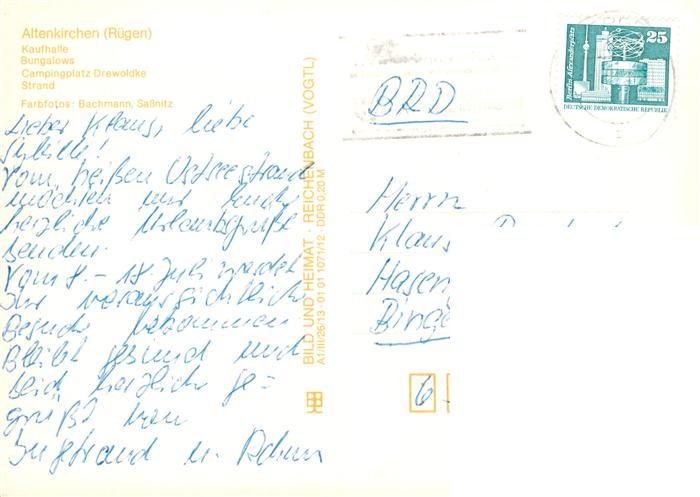 Altenkirchen (Rügen)
Kaufhalle
Bungalows
Campingplatz Drewoldke
Strand
Farbfotos: Bachmann, Saßnitz
Lieber Klaus, liebe
Vom heißen Ostseestrand
möchten wir Euch
herzliche Urlaubsgrüße
senden.
Vom 8. - 18 Juli werdet
Ihr voraussichtlich
Besuch bekommen
Bleibt gesund und
seid herzlich ge=
grüßt von
u.
BILD UND HEIMAT · REICHENBACH (VOGTL)
A1/III/26/13 · 01 01 1071/12 · DDR 0,20 M
25
Berlin, Alexanderplatz
DEUTSCHE DEMOKRATISCHE REPUBLIK
BRD
Herrn
Klaus
Hasen
Binge
6